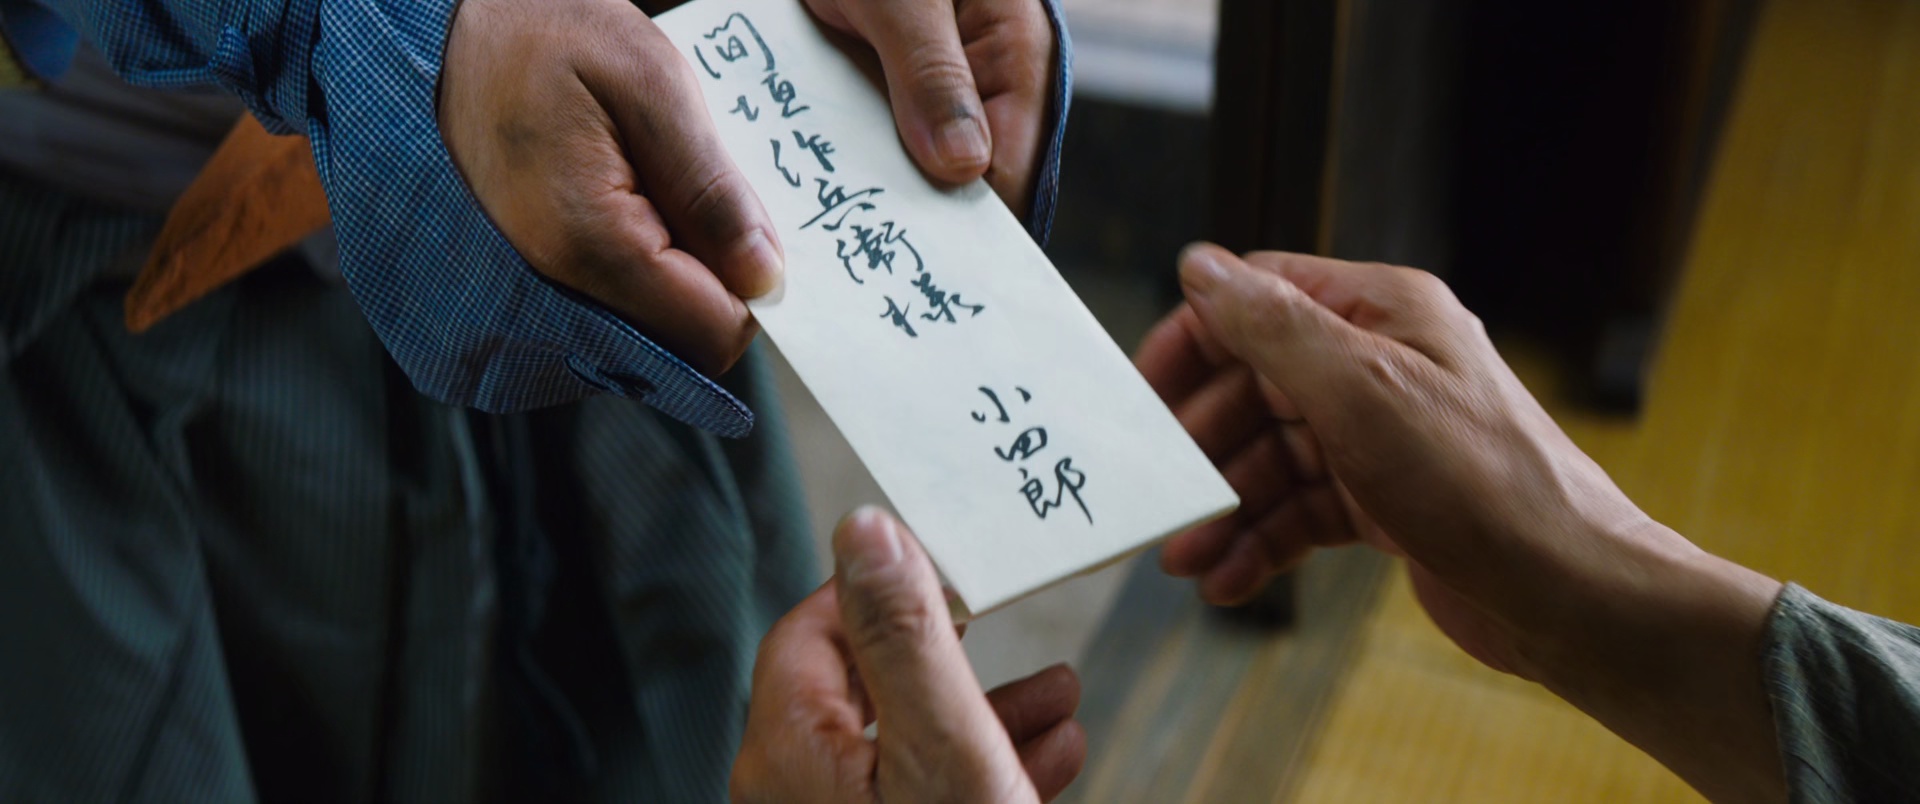 間垣作兵衛様
小四郎